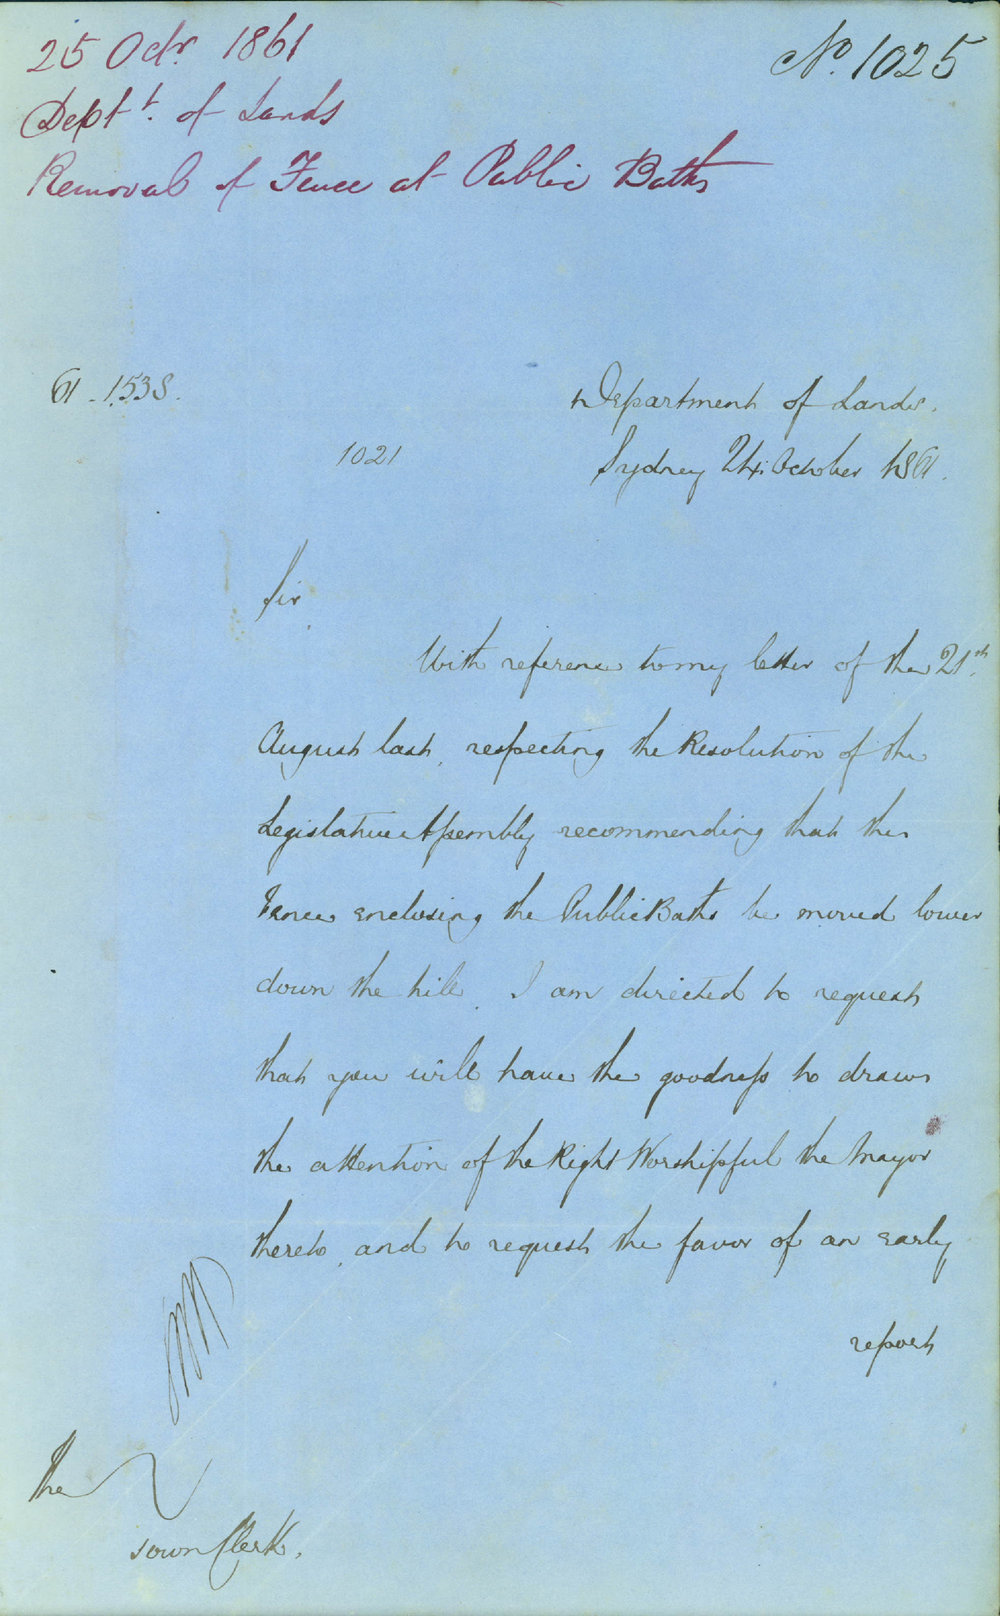 25 Octr 1861
No. 1025
Deptt. of Lands
Removal of Fence at Public Baths
61-1538.
Department of Lands.
1021
Sydney 24 October 1861.
Sir
With reference to my letter of the 21st
August last, respecting the Resolution of the
Legislative Assembly recommending that the
Fence enclosing the Public Baths be moved lower
down the hill. I am directed to request
that you will have the goodness to draw
the attention of the Right Worshipful the Mayor
thereto, and to request the favor of an early
report
The
Town Clerk.